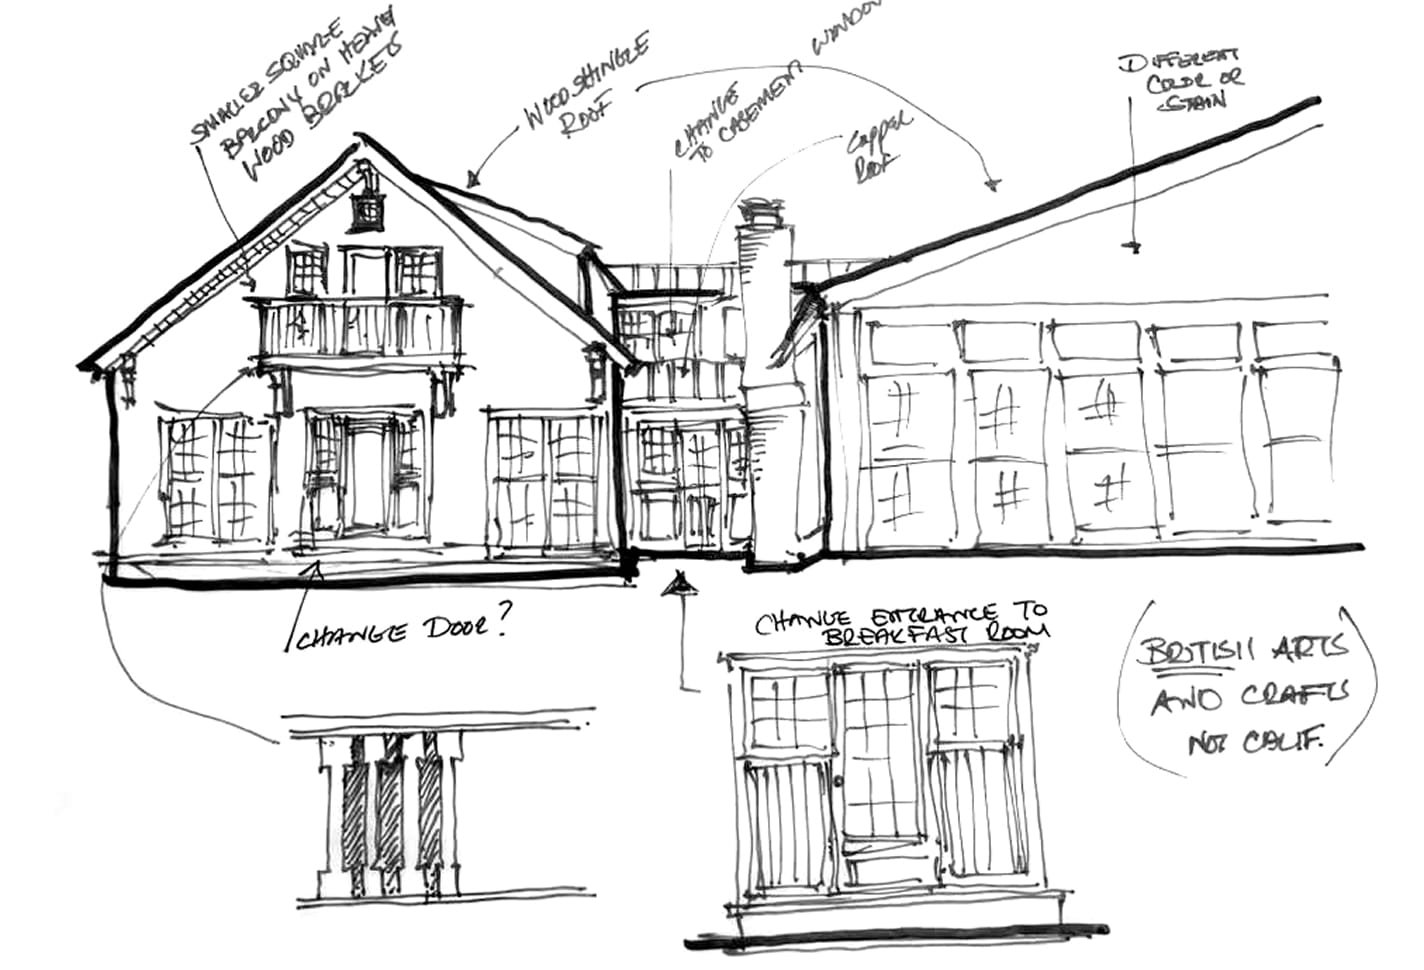 SMALLER SQUARE
BALCONY ON HEAVY
WOOD BRACKETS
WOOD SHINGLE
ROOF
CHANGE
TO CASEMENT WINDOW
COPPER
ROOF
DIFFERENT
COLOR OR
STAIN
CHANGE DOOR?
CHANGE ENTRANCE TO
BREAKFAST ROOM
(BRITISH ARTS
AND CRAFTS
NOT CALIF.)